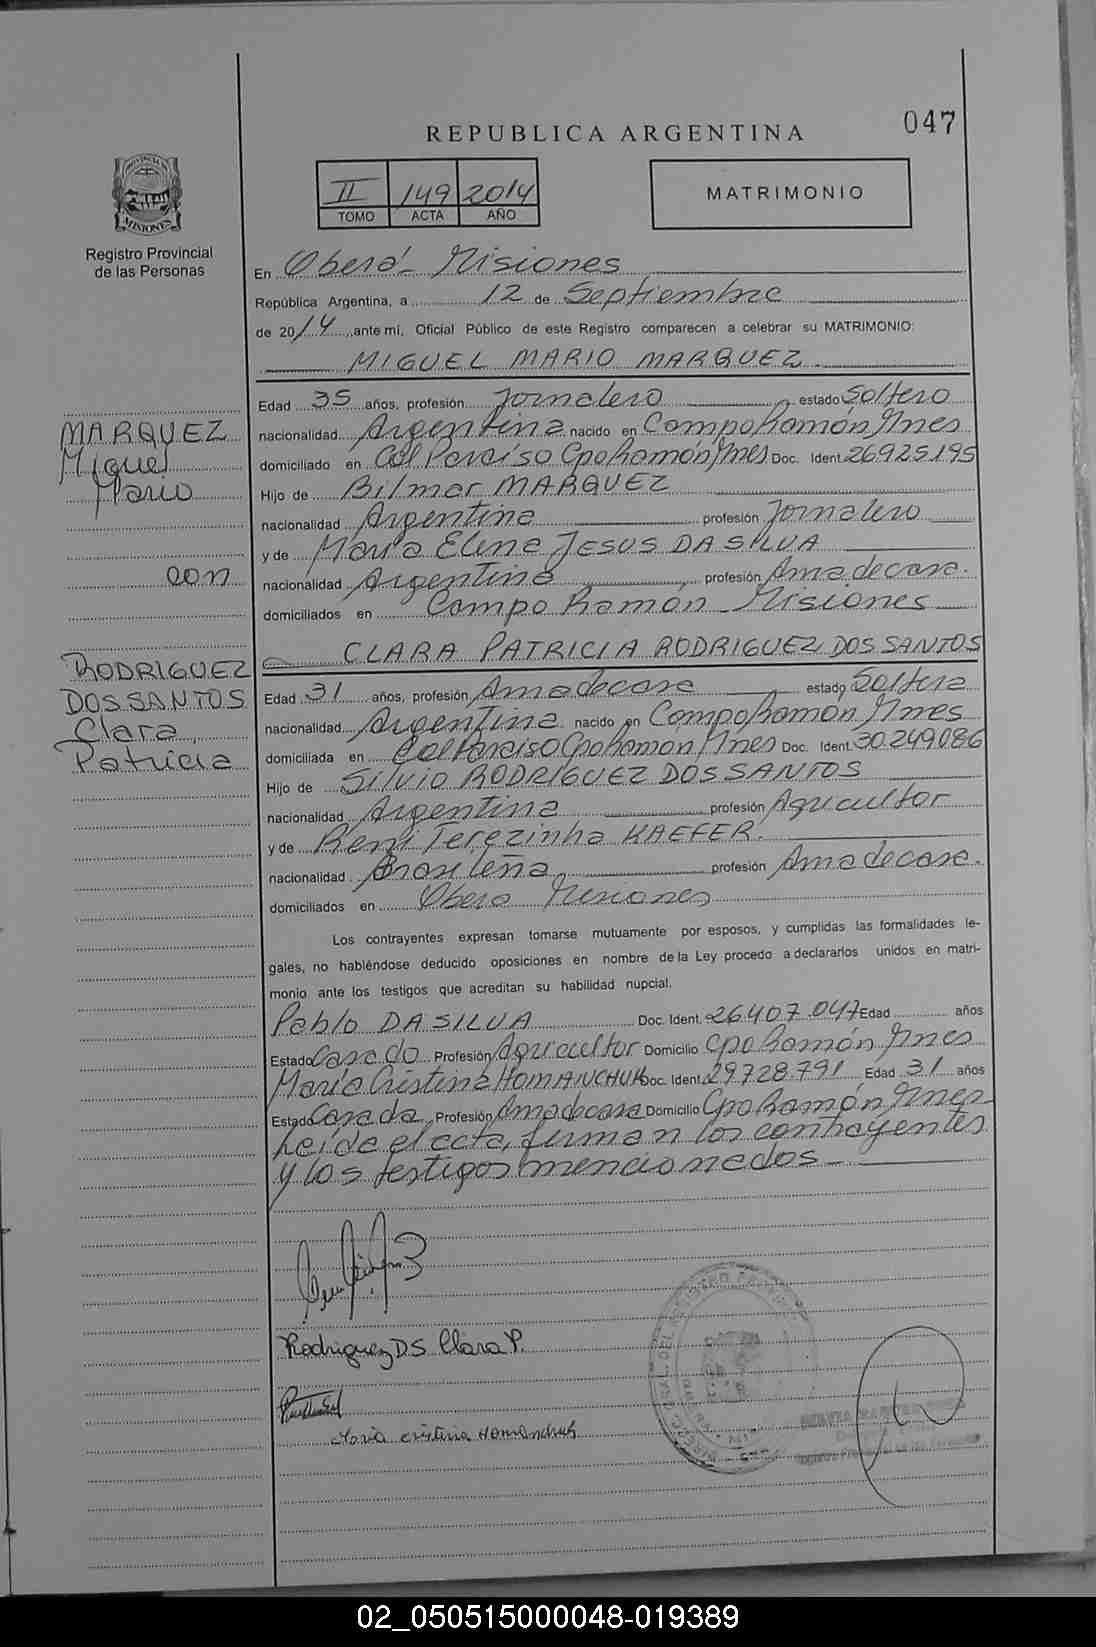 047
REPUBLICA ARGENTINA
II 149 2014
TOMO ACTA AÑO
MATRIMONIO
PROVINCIA DE
MISIONES
Registro Provincial
de las Personas
En Oberá - Misiones
República Argentina, a 12 de Septiembre
de 2014, ante mí, Oficial Público de este Registro comparecen a celebrar su MATRIMONIO:
MIGUEL MARIO MARQUEZ
Edad 35 años, profesión Jornalero estado Soltero
nacionalidad Argentina nacido en Campo Ramón Mnes
domiciliado en Col Paraiso Cpo Ramón Mnes Doc. Ident. 26925195
Hijo de Bilmar MARQUEZ
nacionalidad Argentina profesión Jornalero
y de Maria Elena JESUS DA SILVA
nacionalidad Argentina profesión Ama de casa.
domiciliados en Campo Ramón - Misiones
CLARA PATRICIA RODRIGUEZ DOS SANTOS
Edad 31 años, profesión Ama de casa estado Soltera
nacionalidad Argentina nacido en Campo Ramón Mnes
domiciliada en Col Paraiso Cpo Ramón Mnes Doc. Ident. 30.249.086
Hijo de Silvio RODRIGUEZ DOS SANTOS
nacionalidad Argentina profesión Agricultor
y de Reni Terezinha KAEFER.
nacionalidad Brasileña profesión Ama de casa.
domiciliados en Obera Misiones
Los contrayentes expresan tomarse mutuamente por esposos, y cumplidas las formalidades le-
gales, no habiéndose deducido oposiciones en nombre de la Ley procedo a declararlos unidos en matri-
monio ante los testigos que acreditan su habilidad nupcial.
Pablo DA SILVA Doc. Ident. 26.407.047 Edad años
Estado Casado Profesión Agricultor Domicilio Cpo Ramón Mnes
Maria Cristina HOMANCHUK Doc. Ident. 29728.791 Edad 31 años
Estado Casada Profesión Ama de casa Domicilio Cpo Ramón Mnes
Leída el acta, firman los contrayentes
y los testigos mencionados
MARQUEZ
Miguel
Mario
con
RODRIGUEZ
DOS SANTOS
Clara
Patricia
Rodriguez D.S. Clara P.
Maria cristina Homanchuk
02_050515000048-019389